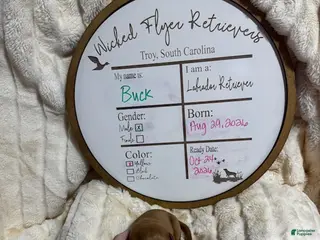 Wicked Flyer Retrievers
Troy, South Carolina
My name is:
Buck
I am a:
Labrador Retriever
Gender:
Male
Female
Born:
Aug 29, 2026
Color:
Yellow
Black
Chocolate
Ready Date:
Oct 24,
2026
Lancaster
Puppies